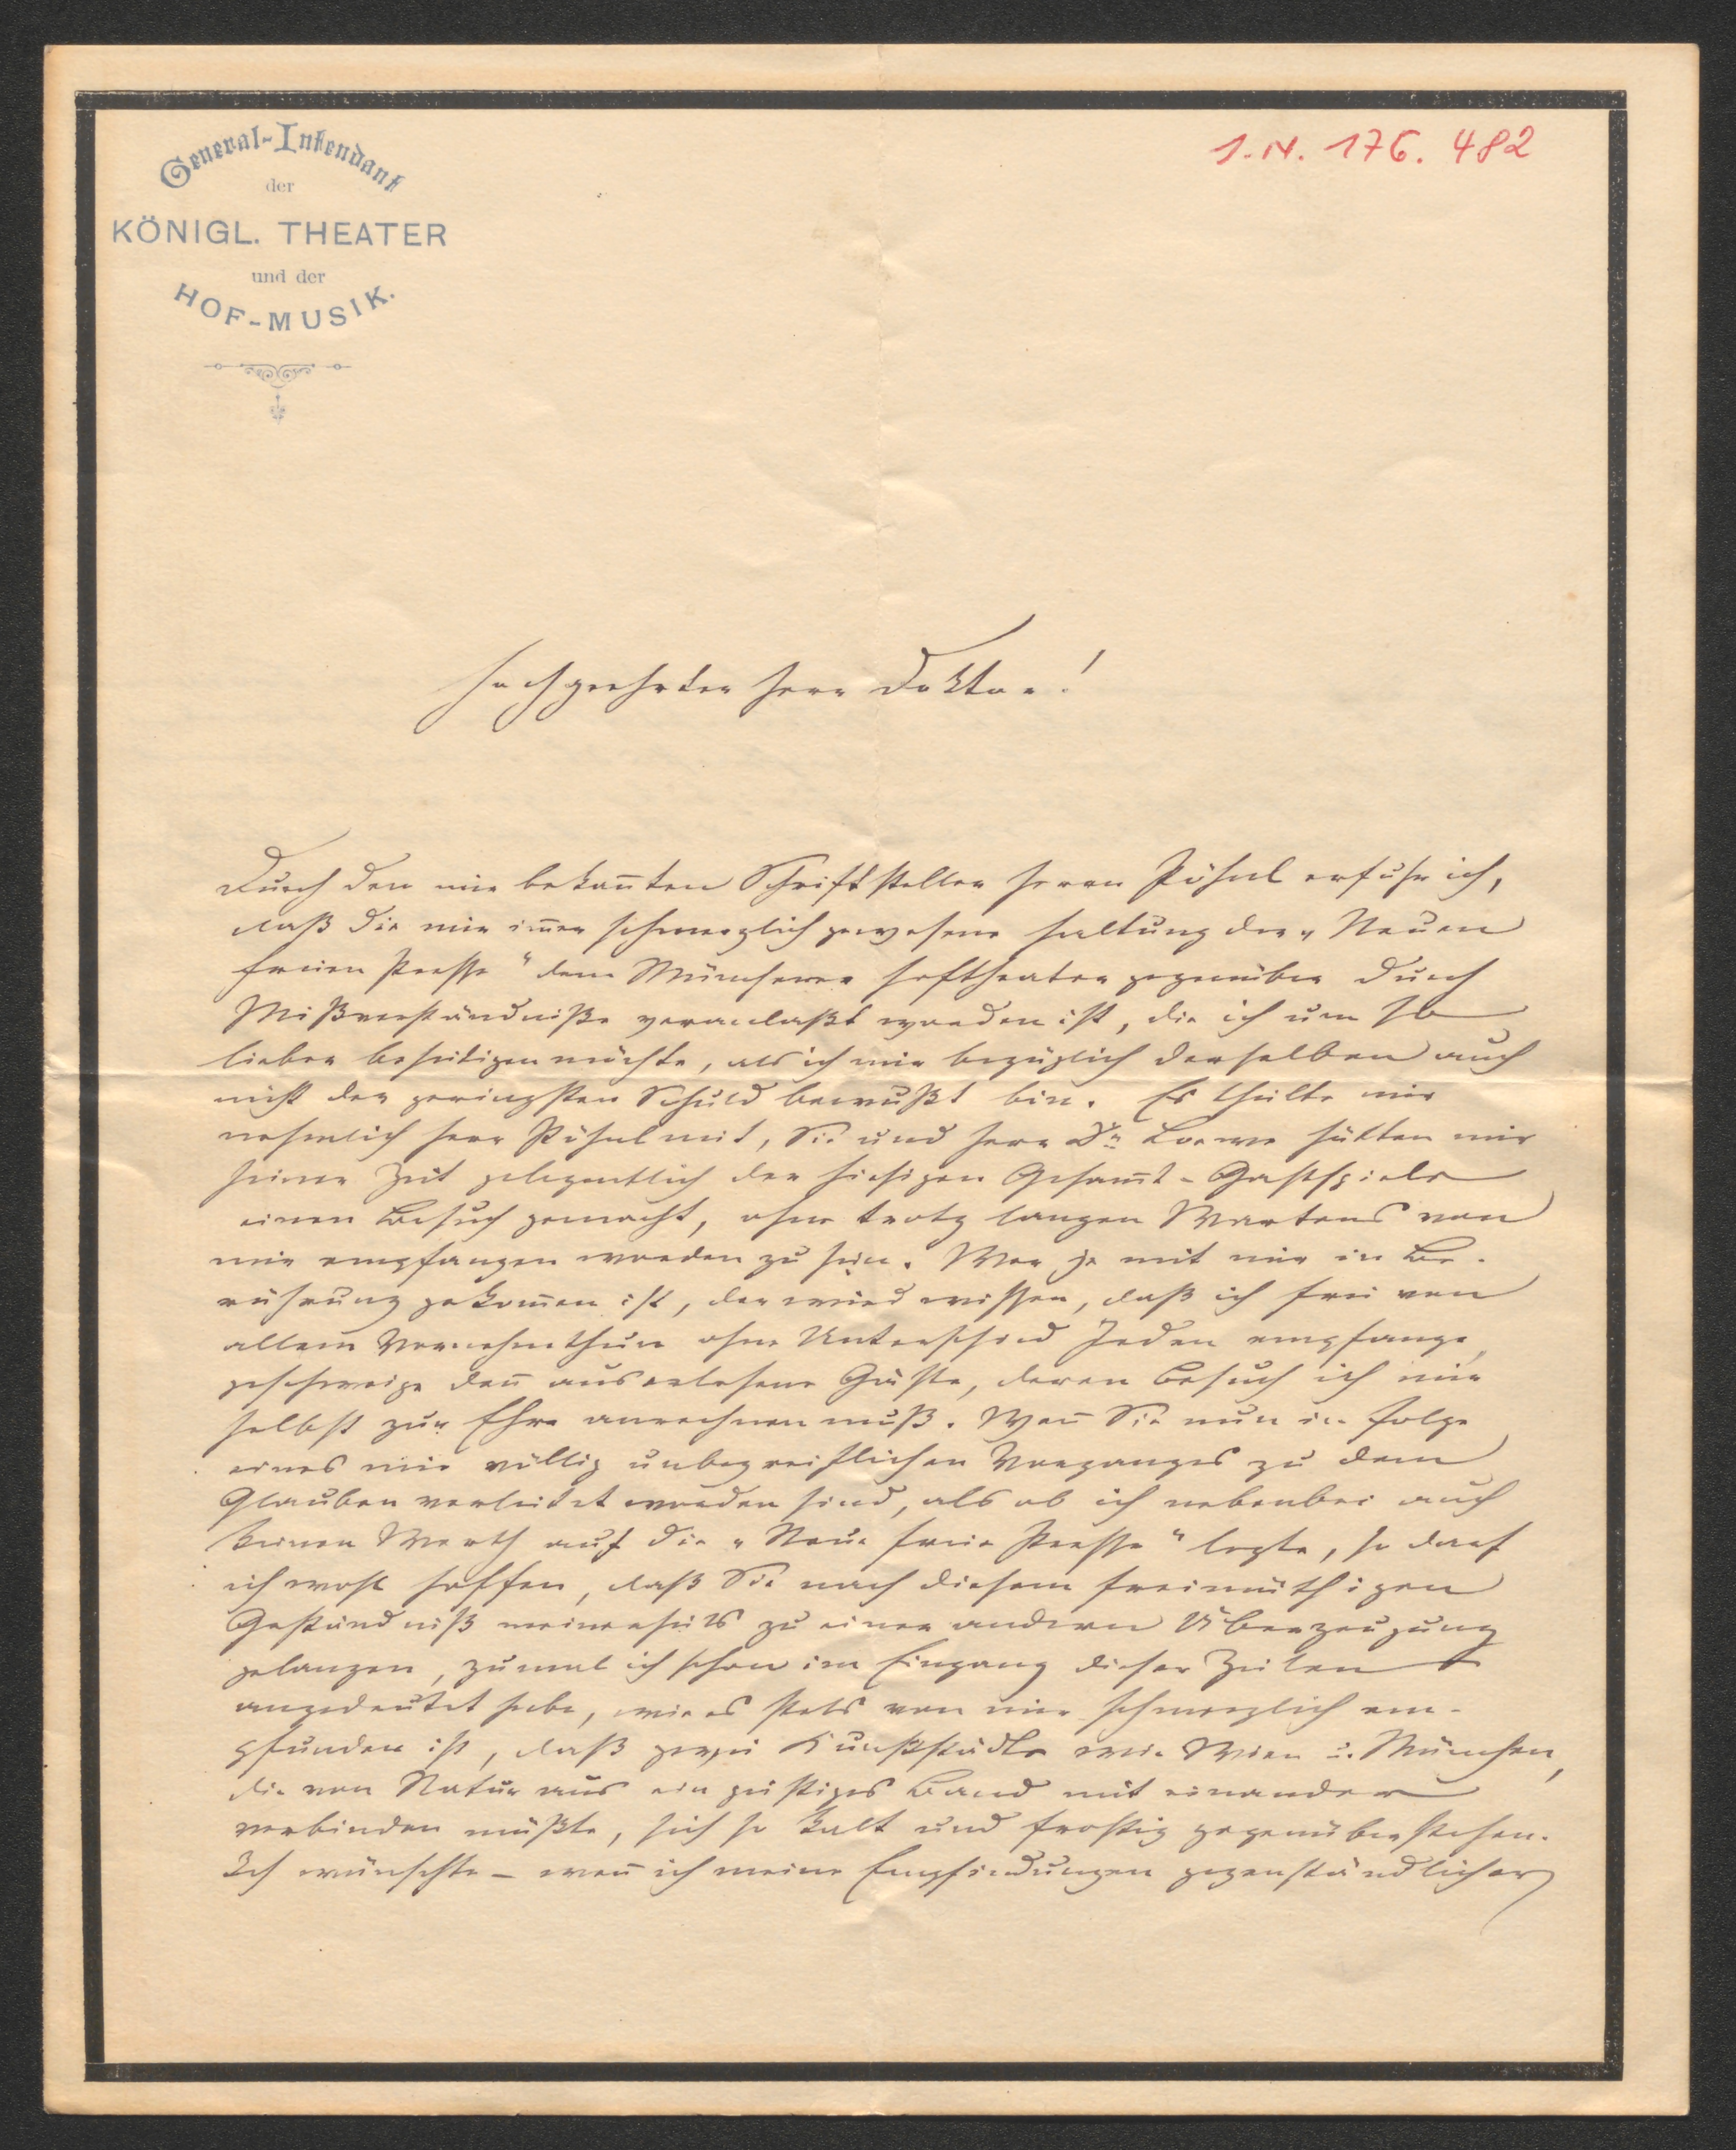 General-Intendant
der
KÖNIGL. THEATER
und der
HOF-MUSIK.
I.N. 176.482
Hochgeehrter Herr Doktor!
Durch den mir bekan̄ten Schriftsteller Herrn Pöhnl erfuhr ich,
daß die mir im̄er schmerzlich gewesene Haltung der „Neuen
freien Presse" dem Münchener Hoftheater gegenüber durch
Mißverständniße veranlaßt worden ist, die ich um so
lieber beseitigen möchte, als ich mir bezüglich derselben auch
nicht der geringsten Schuld bewußt bin. Es theilte mir
nehmlich Herr Pöhnl mit, Sie und Herr Dr Loewe hätten mir
seiner Zeit gelegentlich der hiesigen Gesam̄t-Gastspiele
einen Besuch gemacht, ohne trotz langen Wartens von
mir empfangen worden zu sein. Wer je mit mir in Be-
rührung gekom̄en ist, der wird wissen, daß ich frei von
allem Vornehmthun ohne Unterschied Jeden empfange,
geschweige den̄ auserlesene Gäste, deren Besuch ich mir
selbst zur Ehre anrechnen muß. Wen̄ Sie nun in Folge
eines mir völlig unbegreiflichen Vorganges zu dem
Glauben verleitet worden sind, als ob ich nebenbei auch
keinen Werth auf die „Neue freie Presse" legte, so darf
ich wohl hoffen, daß Sie nach diesem freimüthigen
Geständniß meinerseits zu einer andern Überzeugung
gelangen, zumal ich schon im Eingang dieser Zeilen
angedeutet habe, wie es stets von mir schmerzlich em-
pfunden ist, daß zwei Kunststädte wie Wien u. München,
die von Natur aus ein geistiges Band mit einander
verbinden müßte, sich so kalt und frostig gegenüberstehen.
Ich wünschte - wen̄ ich meine Empfindungen gegenständlicher